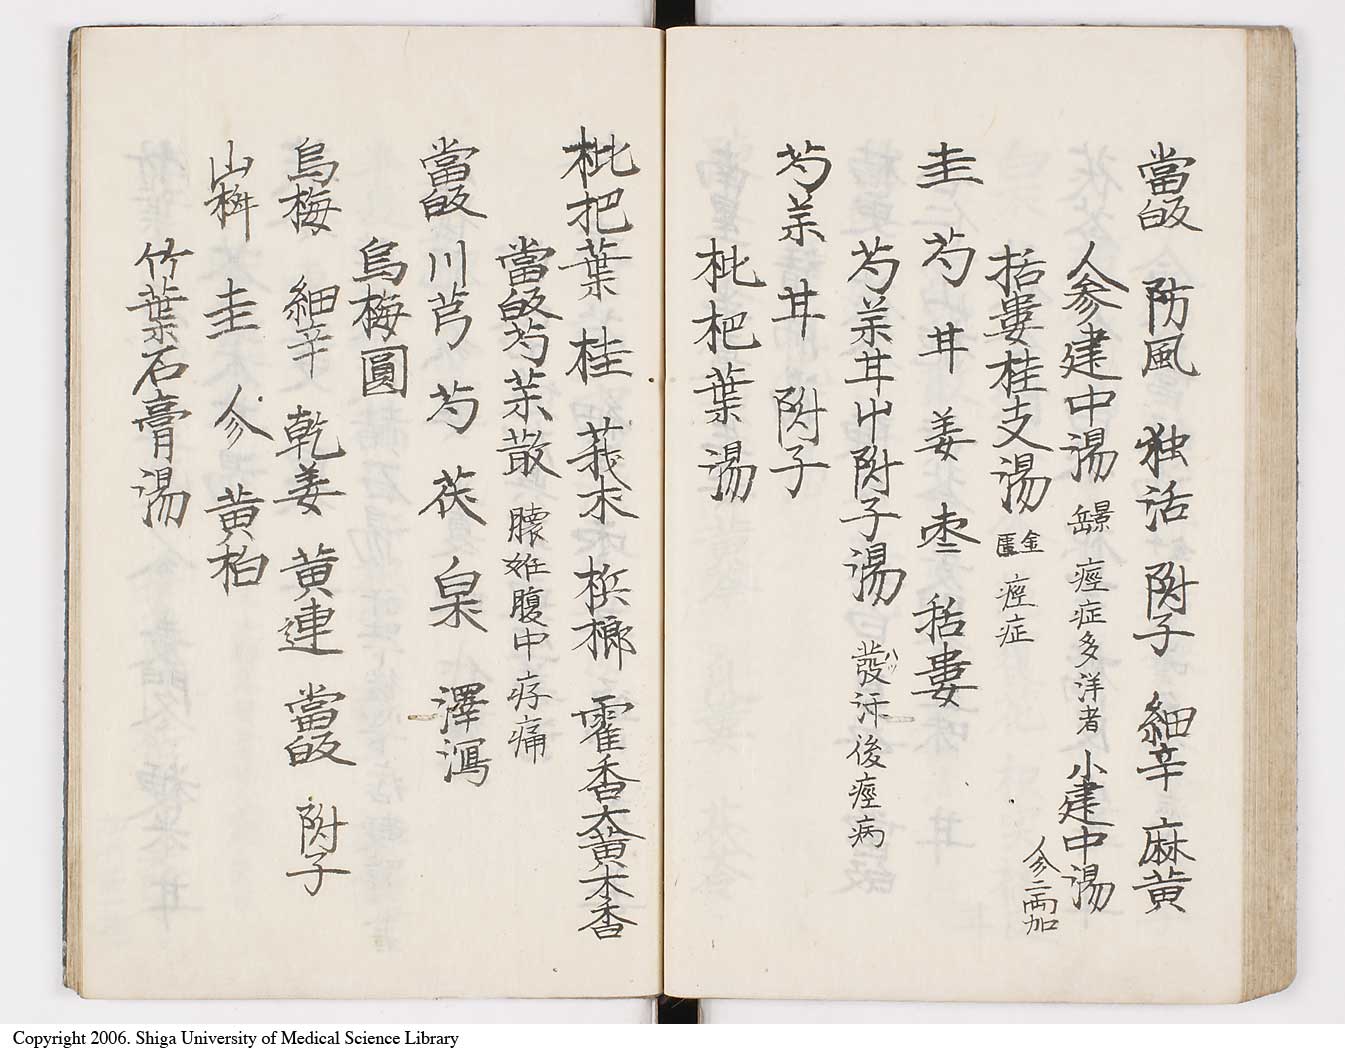 當皈 防風 独活 附子 細辛 麻黄
人参建中湯 景岳 痙症多洋者 小建中湯 人参二両加
括蔞桂支湯 金匱 痙症
圭 芍 甘 姜 枣 括蔞
芍薬甘艸附子湯 發汗後痙病 ハツ
芍薬 甘 附子
枇杷葉湯
枇杷葉 桂 莪朮 梹榔 霍香 大黄 木香
當皈芍薬散 懐妊腹中㽲痛
當皈 川芎 芍 茯 白朮 澤瀉
烏梅圓
烏梅 細辛 乾姜 黄連 當皈 附子
山椒 圭 人参 黄柏
竹葉石膏湯
Copyright 2006. Shiga University of Medical Science Library